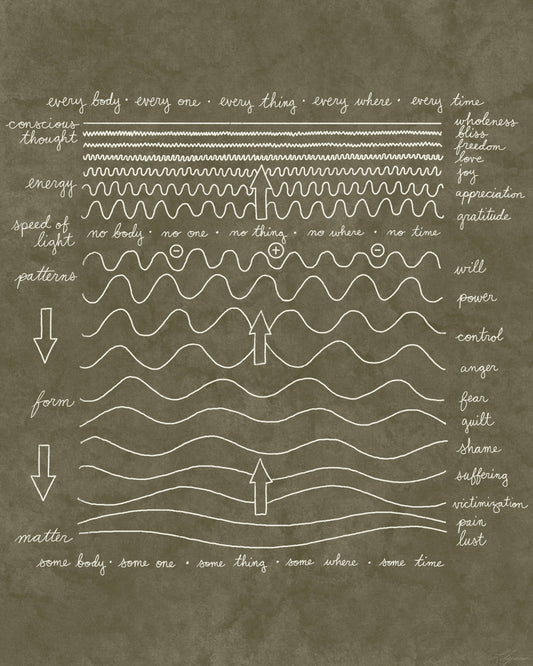 every body · every one · every thing · every where · every time
conscious thought
wholeness
bliss
freedom
love
joy
energy
appreciation
gratitude
speed of light
no body · no one · no thing · no where · no time
− + −
will
patterns
power
control
anger
form
fear
guilt
shame
suffering
victimization
pain
matter
lust
some body · some one · some thing · some where · some time